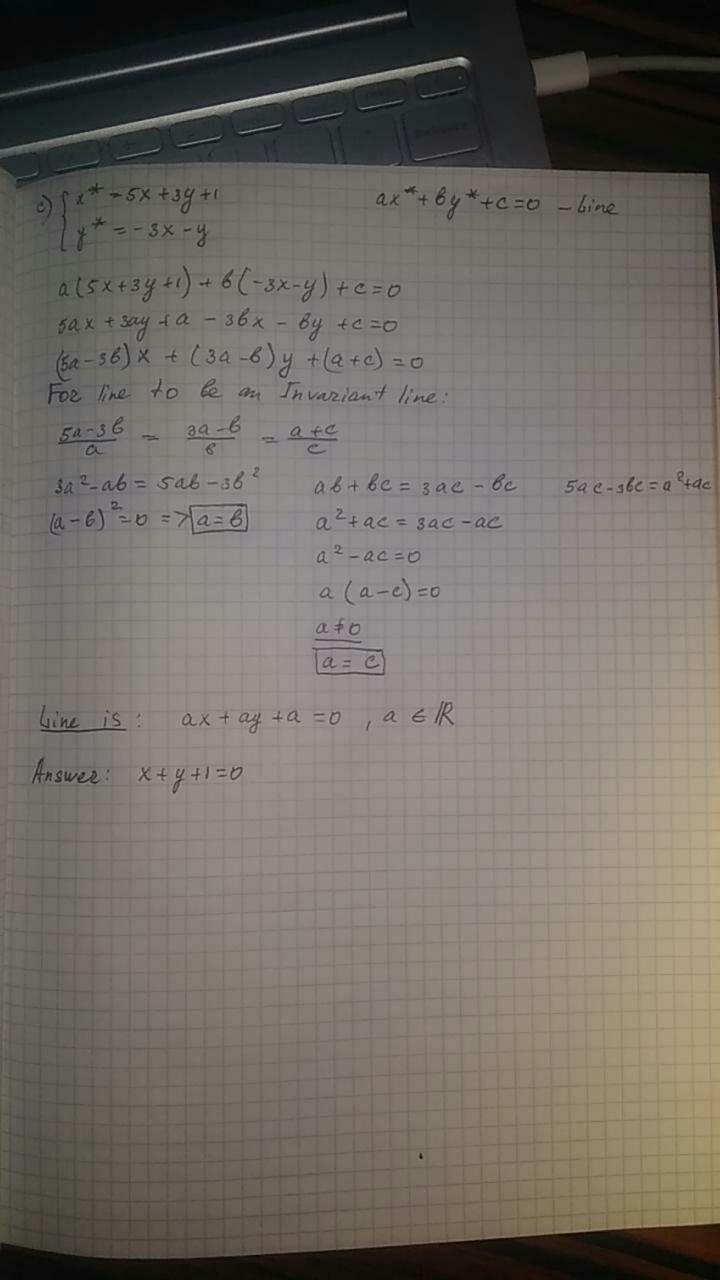 c) { x* = 5x + 3y + 1     ax* + by* + c = 0 – Line
y* = -3x - y
a(5x+3y+1) + b(-3x-y) + c = 0
5ax + 3ay + a - 3bx - by + c = 0
(5a-3b)x + (3a-b)y + (a+c) = 0
For line to be an Invariant line:
(5a-3b)/a = (3a-b)/b = (a+c)/c
3a² - ab = 5ab - 3b²     ab + bc = 3ac - bc     5ac - 3bc = a² + ac
(a-b)² = 0 => a = b     a² + ac = 3ac - ac
a² - ac = 0
a(a-c) = 0
a ≠ 0
a = c
Line is: ax + ay + a = 0 , a ∈ ℝ
Answer: x + y + 1 = 0